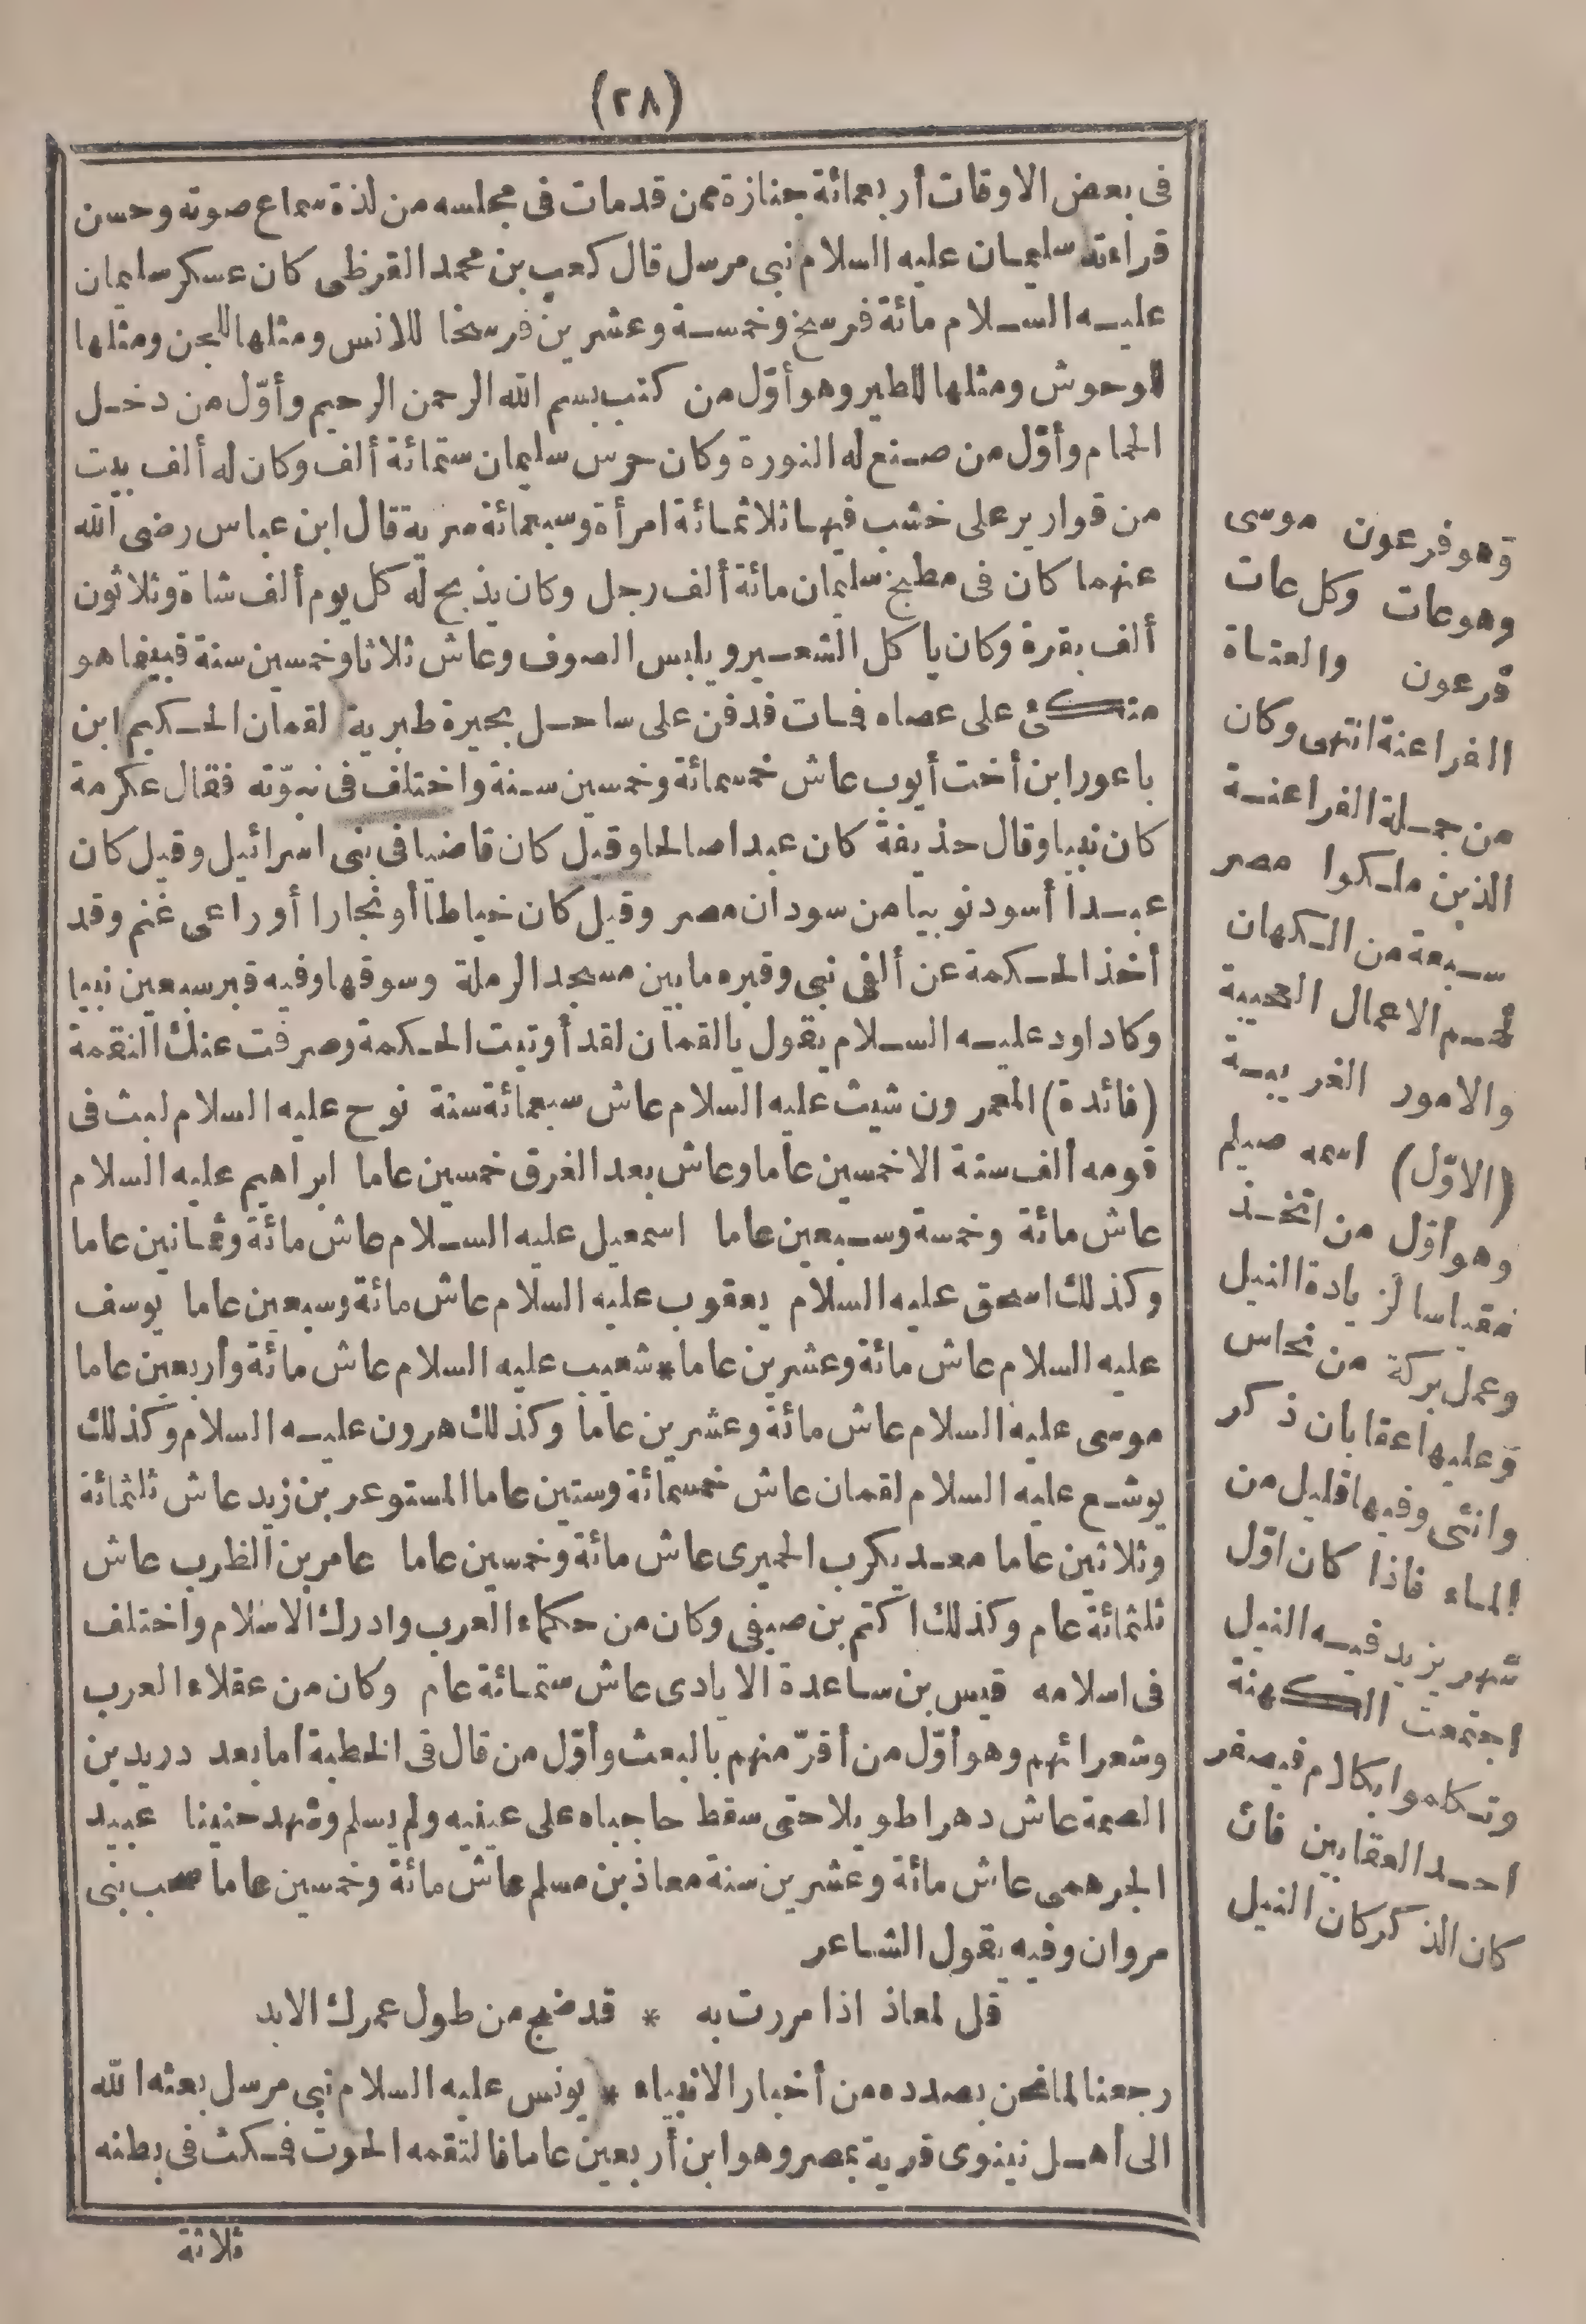 (٢٨)
فى بعض الاوقات أربعمائة جنازة ممن قد مات فى مجلسه من لذة سماع صوته وحسن
قراءته (سليمان عليه السلام) نبى مرسل قال كعب بن محمد القرظى كان عسكر سليمان
عليه السلام مائة فرسخ وخمسة وعشرين فرسخا للانس ومثلها للجن ومثلها
للوحوش ومثلها للطير وهو أوّل من كتب بسم الله الرحمن الرحيم وأوّل من دخل
الحمام وأوّل من صنع له النورة وكان حرس سليمان ستمائة ألف وكان له ألف بيت
من قوارير على خشب فيها ثلاثمائة امرأة وسبعمائة سرية قال ابن عباس رضى الله
عنهما كان فى مطبخ سليمان مائة ألف رجل وكان يذبح له كل يوم ألف شاة وثلاثون
ألف بقرة وكان يأكل الشعير ويلبس الصوف وعاش ثلاثا وخمسين سنة فبينما هو
متكئ على عصاه فمات فدفن على ساحل بحيرة طبرية (لقمان الحكيم) ابن
باعور ابن أخت أيوب عاش خمسمائة وخمسين سنة واختلف فى نبوّته فقال عكرمة
كان نبيا وقال حذيفة كان عبدا صالحا وقيل كان قاضيا فى بنى اسرائيل وقيل كان
عبدا أسود نوبيا من سودان مصر وقيل كان خياطا أو نجارا أو راعى غنم وقد
أخذ الحكمة عن ألفى نبى وقبره ما بين مسجد الرملة وسوقها وفيه قبر سبعين نبيا
وكاد اود عليه السلام يقول يا لقمان لقد أوتيت الحكمة وصرفت عنك النقمة
(فائدة) المعمرون شيث عليه السلام عاش سبعمائة سنة نوح عليه السلام لبث فى
قومه ألف سنة الا خمسين عاما وعاش بعد الغرق خمسين عاما ابراهيم عليه السلام
عاش مائة وخمسة وسبعين عاما اسمعيل عليه السلام عاش مائة وثمانين عاما
وكذلك اسحق عليه السلام يعقوب عليه السلام عاش مائة وسبعين عاما يوسف
عليه السلام عاش مائة وعشرين عاما * شعيب عليه السلام عاش مائة وأربعين عاما
موسى عليه السلام عاش مائة وعشرين عاما وكذلك هرون عليه السلام وكذلك
يوشع عليه السلام لقمان عاش خمسمائة وستين عاما المستوعر بن زيد عاش ثلثمائة
وثلاثين عاما معديكرب الحميرى عاش مائة وخمسين عاما عامر بن الظرب عاش
ثلثمائة عام وكذلك اكتم بن صيفى وكان من حكماء العرب وادرك الاسلام واختلف
فى اسلامه قيس بن ساعدة الايادى عاش ستمائة عام وكان من عقلاء العرب
وشعرائهم وهو أوّل من أقرّ منهم بالبعث وأوّل من قال فى الخطبة أما بعد دريد بن
الصمة عاش دهرا طويلا حتى سقط حاجباه على عينيه ولم يسلم وشهد حنينا عبيد
الجرهمى عاش مائة وعشرين سنة معاذ بن مسلم عاش مائة وخمسين عاما صحب بنى
مروان وفيه يقول الشاعر
قل لمعاذ اذا مررت به * قد ضج من طول عمرك الابد
رجعنا لما نحن بصدده من أخبار الانبياء * (يونس عليه السلام) نبى مرسل بعثه الله
الى أهل نينوى قرية بمصر وهو ابن أربعين عاما فالتقمه الحوت فمكث فى بطنه
ثلاثة
وهو فرعون موسى
وهو عات وكل عات
فرعون والعتاة
الفراعنة انتهى وكان
من جملة الفراعنة
الذين ملكوا مصر
سبعة من الكهان
لهم الاعمال العجيبة
والامور الغريبة
(الاوّل) اسمه صيلم
وهو أوّل من اتخذ
مقياسا لزيادة النيل
وعمل بركة من نحاس
وعليها عقابان ذكر
وانثى وفيها قليل من
الماء فاذا كان اوّل
شهر يزيد فيه النيل
اجتمعت الكهنة
وتكلموا بكلام فيصفر
احد العقابين فان
كان الذكر كان النيل